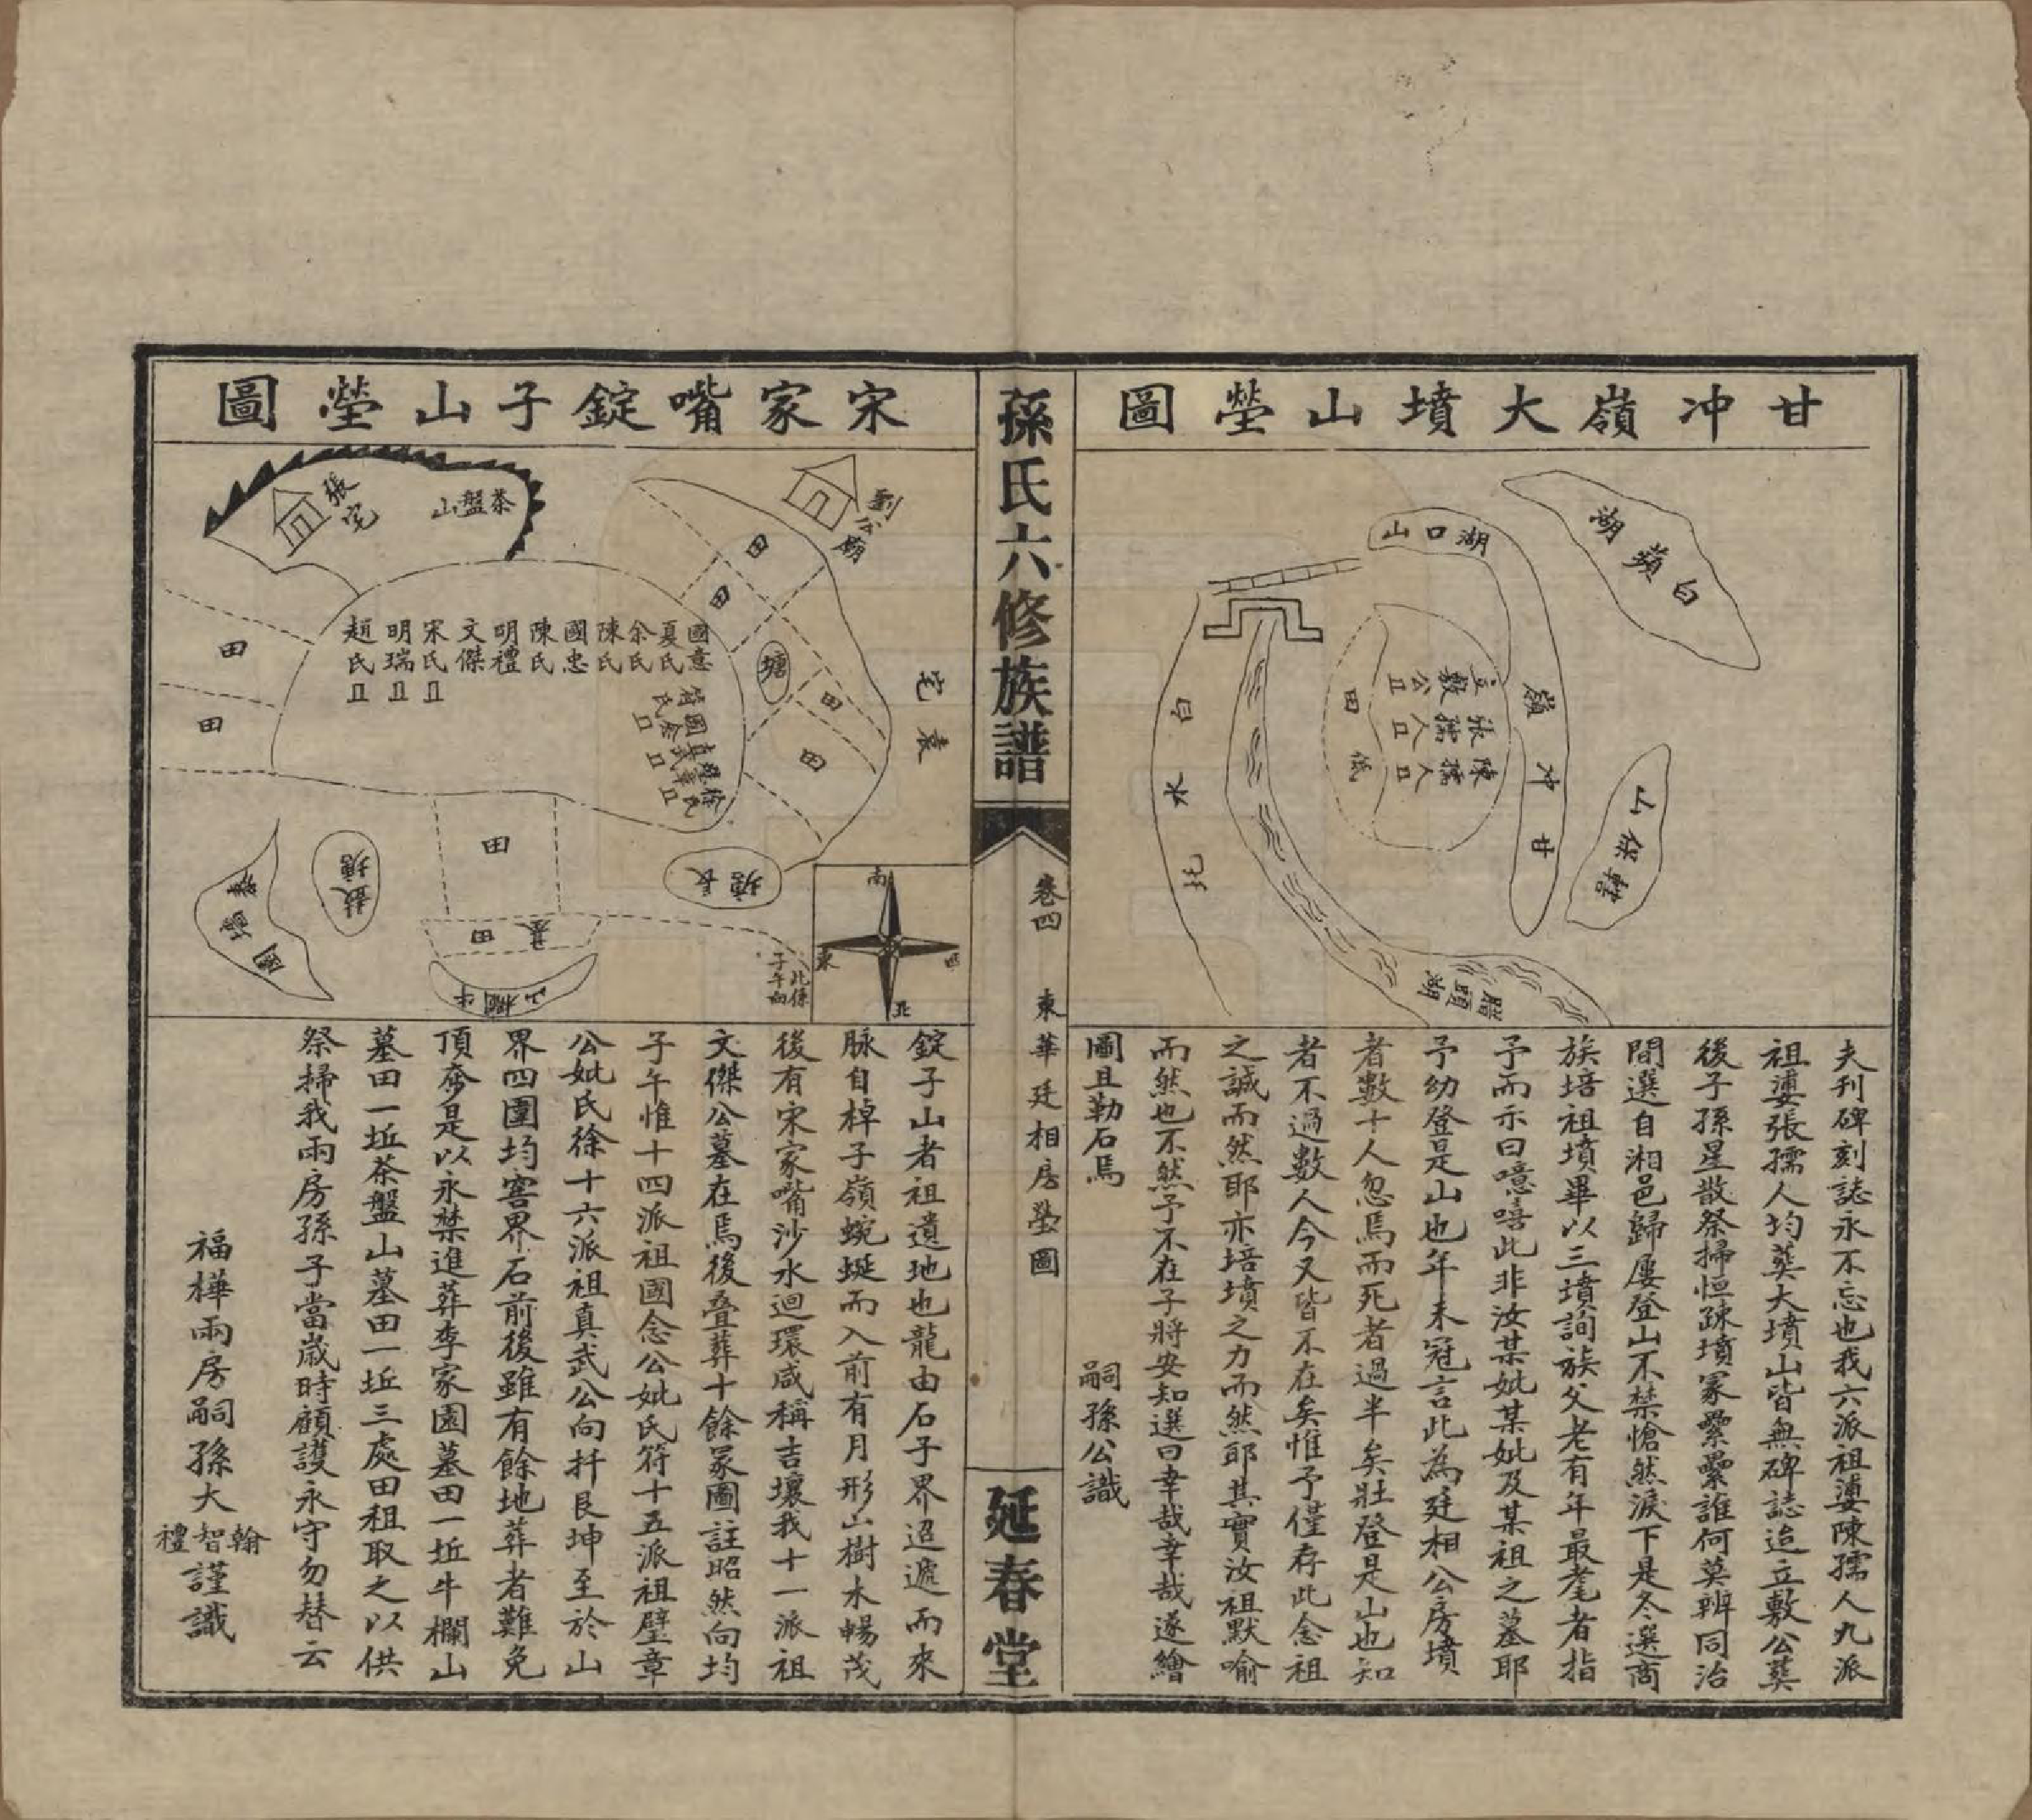 甘冲嶺大墳山塋圖
白蘋湖
湖口山
嶺冲甘
立敷公
張孺人
陳孺人
田低
白水圫
湖
夫刊碑刻誌永不忘也我六派祖婆陳孺人九派
祖婆張孺人均葬大墳山皆無碑誌迨立敷公葬
後子孫星散祭掃恒踈墳冢纍纍誰何莫辨同治
間選自湘邑歸屢登山不禁愴然淚下是冬選商
族培祖墳畢以三墳詢族父老有年最耄者指
予而示曰噫嘻此非汝某妣某妣及某祖之墓耶
予幼登是山也年未冠言此為廷相公房墳
者數十人忽焉而死者過半矣壯登是山也知
者不過數人今又皆不在矣惟予僅存此念祖
之誠而然耶亦培墳之力而然耶其實汝祖默喻
而然也不然予不在子將安知選曰幸哉幸哉遂繪
圖且勒石焉　嗣孫公識
孫氏六修族譜
卷四　東華廷相房塋圖
延春堂
宋家嘴錠子山塋圖
劉公廟
袁宅
田
田
塘
田
田
國意
夏氏
余氏
陳氏
國忠
陳氏
明禮
文傑
宋氏
明瑞
趙氏
符氏
國念
真武
璧章
徐氏
茶盤山
張宅
田
田
田
墓田
牛欄山
長塘
南
西
北
東
此係
子午向
錠子山者祖遺地也龍由石子界迢遞而來
脉自棹子嶺蜿蜒而入前有月形山樹木暢茂
後有宋家嘴沙水迴環咸稱吉壤我十一派祖
文傑公墓在焉後叠葬十餘冢圖註昭然向均
子午惟十四派祖國念公妣氏符十五派祖璧章
公妣氏徐十六派祖真武公向扦艮坤至於山
界四圍均窖界石前後雖有餘地葬者難免
頂脊是以永禁進葬李家園墓田一坵牛欄山
墓田一坵茶盤山墓田一坵三處田租取之以供
祭掃我兩房孫子當歲時顧護永守勿替云
福樺兩房嗣孫大翰智禮謹識